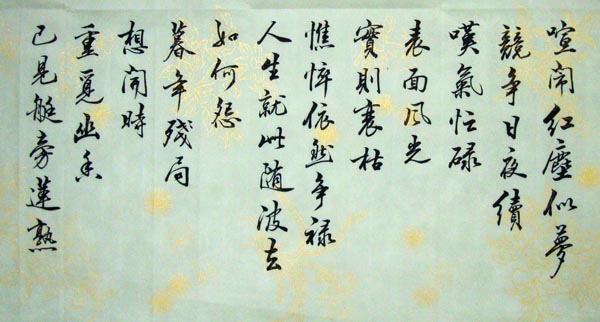 喧闹红塵似夢
競争日夜續
嘆氣忙碌
表面风光
實則衰枯
憔悴依然争禄
人生就此随波去
如何怨
暮年残局
想闹時
重覓幽香
已見艇旁蓮熟